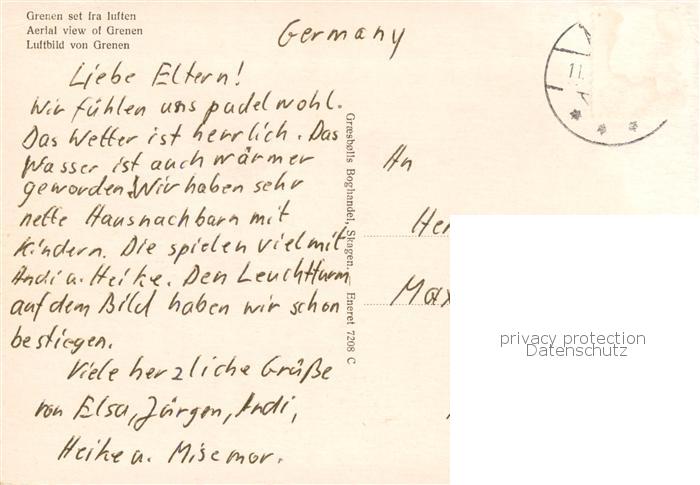 Grenen set fra luften
Aerial view of Grenen
Luftbild von Grenen
Germany
11.
Liebe Eltern!
Wir fühlen uns pudelwohl.
Das Wetter ist herrlich. Das
Wasser ist auch wärmer
geworden! Wir haben sehr
nette Hausnachbarn mit
Kindern. Die spielen viel mit
Andi u. Heike. Den Leuchtturm
auf dem Bild haben wir schon
bestiegen.
Viele herzliche Grüße
von Elsa, Jürgen, Andi,
Heike u. Misemor.
Græsbølls Boghandel, Skagen. Eneret 7208 C
An
Her
Max
privacy protection
Datenschutz